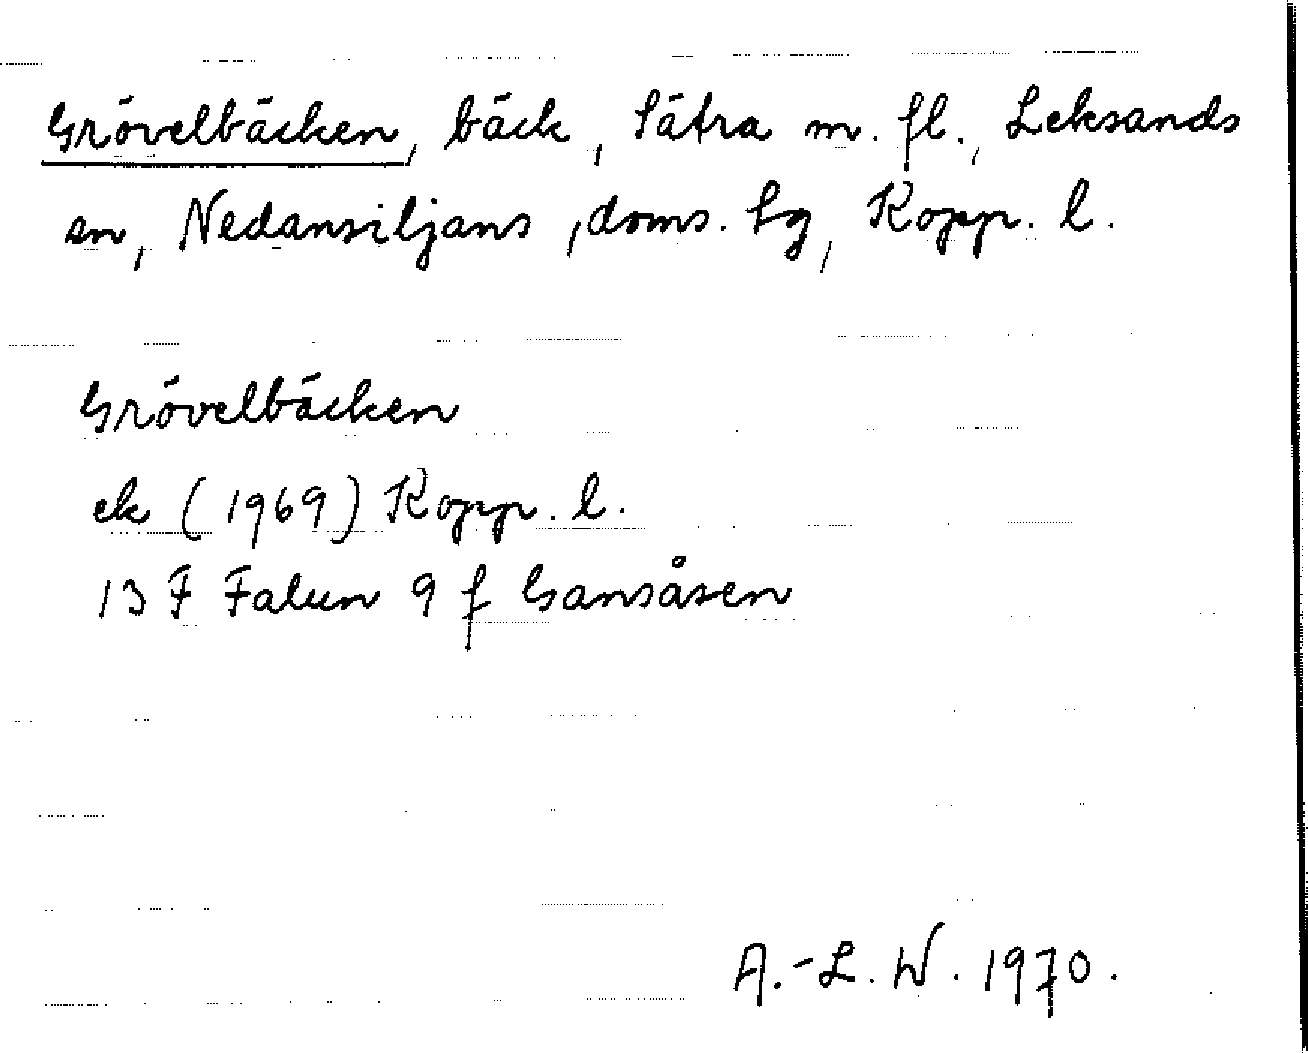 Grövelbäcken, bäck, Sätra m. fl., Leksands
sn, Nedansiljans, doms. hg, Kopp. l.
Grövelbäcken
ek (1969) Kopp. l.
13 F Falun 9 f Gansåsen
A.-L. W. 1970.